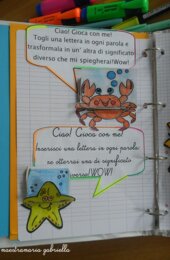 Ciao! Gioca con me!
Togli una lettera in ogni parola e
trasformala in un' altra di significato
diverso che mi spiegherai!Wow!
Ciao! Gioca con me!
Inserisci una lettera in ogni parola:
se otterrai una di significato
verso!WOW!
maestramaria gabriella